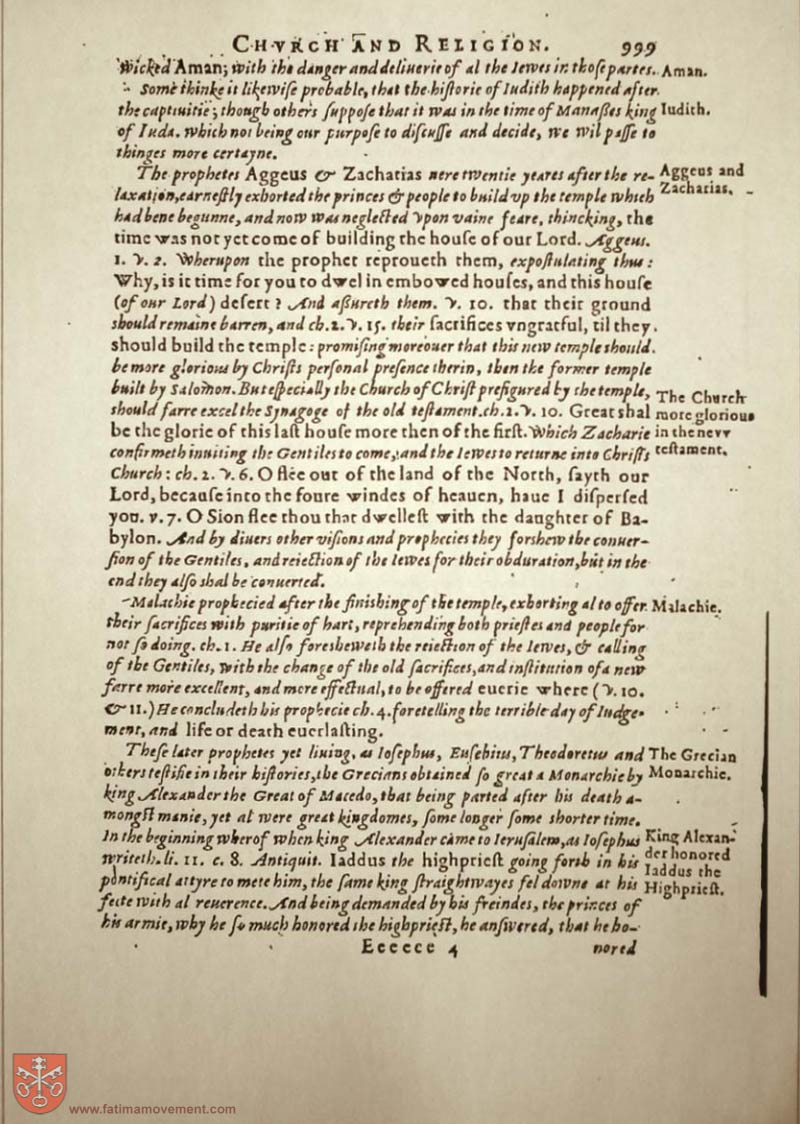 CHVRCH AND RELIGION. 999
Wicked Aman; with the danger and deliuerie of al the Iewes in those partes. Aman.
Some thinke it likewise probable, that the historie of Iudith happened after
the captiuitie; though others suppose that it was in the time of Manasses king Iudith.
of Iuda. which not being our purpose to discusse and decide, we wil passe to
thinges more certayne.
The prophetes Aggeus & Zacharias nere twentie yeares after the re- Aggeus and
laxation, earnestly exhorted the princes & people to build vp the temple which Zacharias.
had bene begunne, and now was neglected vpon vaine feare, thincking, the
time was not yet come of building the house of our Lord. Aggeus.
1. v. 2. Wherupon the prophet reproueth them, expostulating thus:
Why, is it time for you to dwel in embowed houses, and this house
(of our Lord) desert? And assureth them. v. 10. that their ground
should remaine barren, and ch. 2. v. 15. their sacrifices vngratful, til they
should build the temple: promising moreouer that this new temple should
be more glorious by Christs personal presence therin, then the former temple
built by Salomon. But especially the Church of Christ prefigured by the temple, The Church
should farre excel the Synagoge of the old testament. ch. 2. v. 10. Great shal more glorious
be the glorie of this last house more then of the first. Which Zacharie in the nevv
confirmeth inuiting the Gentiles to come, and the Iewes to returne into Christs testament.
Church: ch. 2. v. 6. O flee out of the land of the North, sayth our
Lord, because into the foure windes of heauen, haue I dispersed
you. v. 7. O Sion flee thou that dwellest with the daughter of Ba-
bylon. And by diuers other visions and prophecies they forshew the conuer-
sion of the Gentiles, and reiection of the Iewes for their obduration, but in the
end they also shal be conuerted.
Malachie prophecied after the finishing of the temple, exhorting al to offer Malachie.
their sacrifices with puritie of hart, reprehending both priestes and people for
not so doing. ch. 1. He also foresheweth the reiection of the Iewes, & calling
of the Gentiles, with the change of the old sacrifices, and institution of a new
farre more excellent, and more effectual, to be offered euerie where (v. 10.
& 11.) He concludeth his prophecie ch. 4. foretelling the terrible day of Iudge-
ment, and life or death euerlasting.
These later prophetes yet liuing, as Iosephus, Eusebius, Theodoretus and The Grecian
others testifie in their histories, the Grecians obtained so great a Monarchie by Monarchie.
king Alexander the Great of Macedo, that being parted after his death a-
mongst manie, yet al were great kingdomes, some longer some shorter time.
In the beginning wherof when king Alexander came to Ierusalem, as Iosephus King Alexan-
writeth. li. 11. c. 8. Antiquit. Iaddus the highpriest going forth in his der honored
pontifical attyre to mete him, the same king straightwayes fel downe at his Iaddus the
feete with al reuerence. And being demanded by his freindes, the princes of Highpriest.
his armie, why he so much honored the highpriest, he answered, that he ho-
Eeeeee 4 nored
www.fatimamovement.com